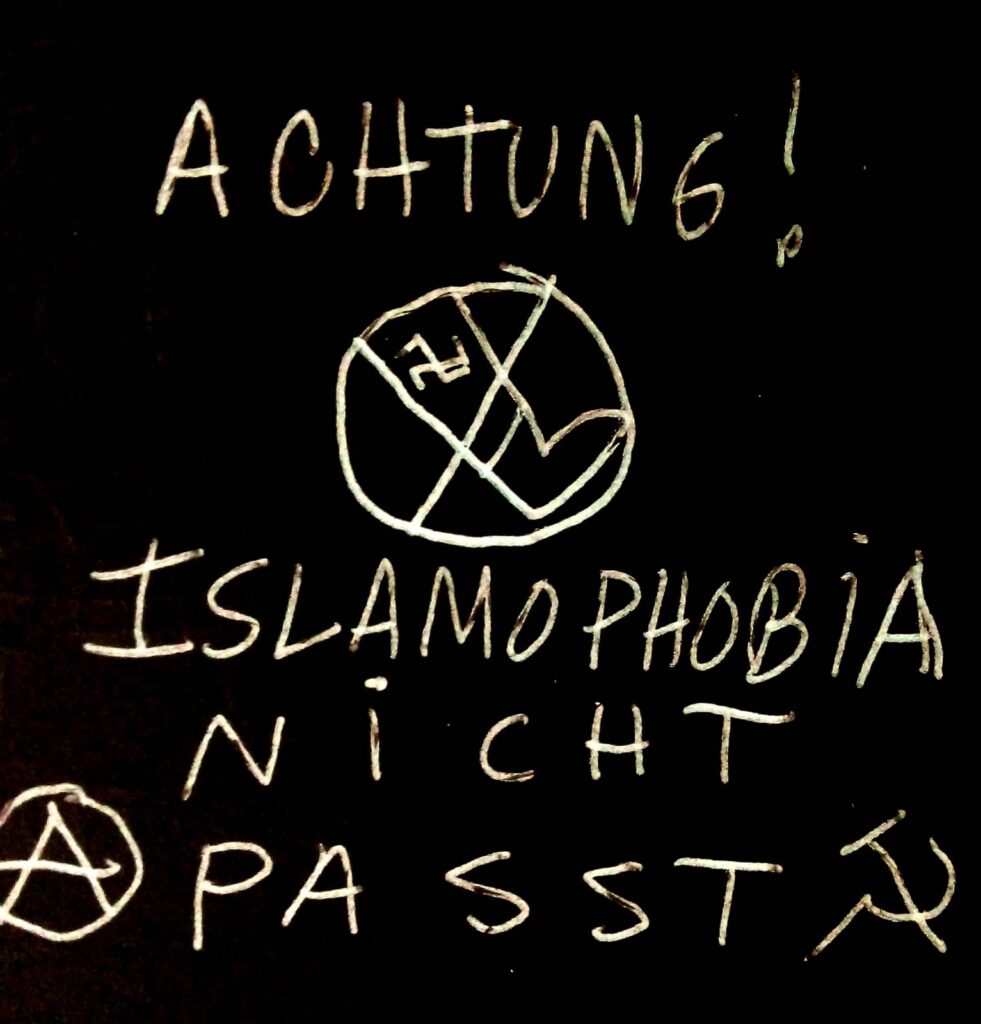 ACHTUNG!
ISLAMOPHOBiA
NiCHT
A PASST